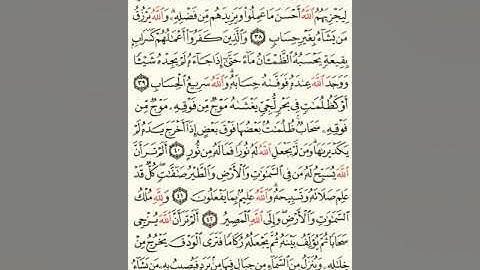 لِيَجْزِيَهُمُ ٱللَّهُ أَحْسَنَ مَا عَمِلُوا۟ وَيَزِيدَهُم مِّن فَضْلِهِۦ ۗ وَٱللَّهُ يَرْزُقُ
مَن يَشَآءُ بِغَيْرِ حِسَابٍ ٣٨ وَٱلَّذِينَ كَفَرُوٓا۟ أَعْمَـٰلُهُمْ كَسَرَابٍۭ
بِقِيعَةٍ يَحْسَبُهُ ٱلظَّمْـَٔانُ مَآءً حَتَّىٰٓ إِذَا جَآءَهُۥ لَمْ يَجِدْهُ شَيْـًٔا
وَوَجَدَ ٱللَّهَ عِندَهُۥ فَوَفَّىٰهُ حِسَابَهُۥ ۗ وَٱللَّهُ سَرِيعُ ٱلْحِسَابِ ٣٩
أَوْ كَظُلُمَـٰتٍ فِى بَحْرٍ لُّجِّىٍّ يَغْشَىٰهُ مَوْجٌ مِّن فَوْقِهِۦ مَوْجٌ مِّن
فَوْقِهِۦ سَحَابٌ ۚ ظُلُمَـٰتٌۢ بَعْضُهَا فَوْقَ بَعْضٍ إِذَآ أَخْرَجَ يَدَهُۥ لَمْ
يَكَدْ يَرَىٰهَا ۗ وَمَن لَّمْ يَجْعَلِ ٱللَّهُ لَهُۥ نُورًا فَمَا لَهُۥ مِن نُّورٍ ٤٠ أَلَمْ تَرَ أَنَّ
ٱللَّهَ يُسَبِّحُ لَهُۥ مَن فِى ٱلسَّمَـٰوَٰتِ وَٱلْأَرْضِ وَٱلطَّيْرُ صَـٰٓفَّـٰتٍ ۖ كُلٌّ قَدْ
عَلِمَ صَلَاتَهُۥ وَتَسْبِيحَهُۥ ۗ وَٱللَّهُ عَلِيمٌۢ بِمَا يَفْعَلُونَ ٤١ وَلِلَّهِ مُلْكُ
ٱلسَّمَـٰوَٰتِ وَٱلْأَرْضِ ۖ وَإِلَى ٱللَّهِ ٱلْمَصِيرُ ٤٢ أَلَمْ تَرَ أَنَّ ٱللَّهَ يُزْجِى
سَحَابًا ثُمَّ يُؤَلِّفُ بَيْنَهُۥ ثُمَّ يَجْعَلُهُۥ رُكَامًا فَتَرَى ٱلْوَدْقَ يَخْرُجُ مِنْ
خِلَـٰلِهِۦ وَيُنَزِّلُ مِنَ ٱلسَّمَآءِ مِن جِبَالٍ فِيهَا مِنۢ بَرَدٍ فَيُصِيبُ بِهِۦ مَن يَشَآءُ